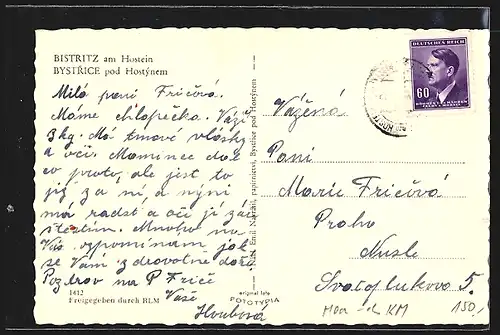 BISTRITZ am Hostein
BYSTŘICE pod Hostýnem
Milá paní Fričová.
Máme chlapečka. Váží
3 kg. Má tmavé vlásky
a oči. Mamince
proto, ale jest to
již za ní a nyní
má radost a
štěstím. Mnoho na
Vás vzpomínám jak
se Vám zdravotně daří.
Pozdrav na P. Friče
Vaše
Holubová
1412
Freigegeben durch RLM
Nakl. Emil Navrátil, papírnictví, Bystřice pod Hostýnem
original foto
FOTOTYPIA
DEUTSCHES REICH
60
BÖHMEN UND MÄHREN
ČECHY A MORAVA
Vážená
Paní
Marie Fričová
Praha
Nusle
Svatoplukova 5.
KM
150,-